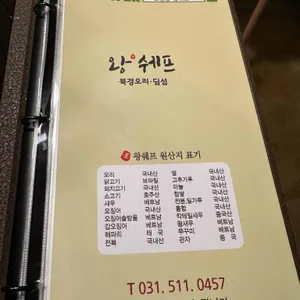 왕쉐프
북경오리·딤섬
왕쉐프 원산지 표기
오리 국내산 쌀 국내산
닭고기 브라질 고추가루 국내산
돼지고기 국내산 마늘 국내산
소고기 호주산 찹쌀 국내산
새우 베트남 전분,밀가루 국내산
오징어 국내산 홍합 국내산
오징어솔방울 베트남 칵테일새우 중국산
갑오징어 베트남 왕새우 베트남
해파리 태국 쭈꾸미 베트남
전복 국내산 관자 중국
T 031. 511. 0457